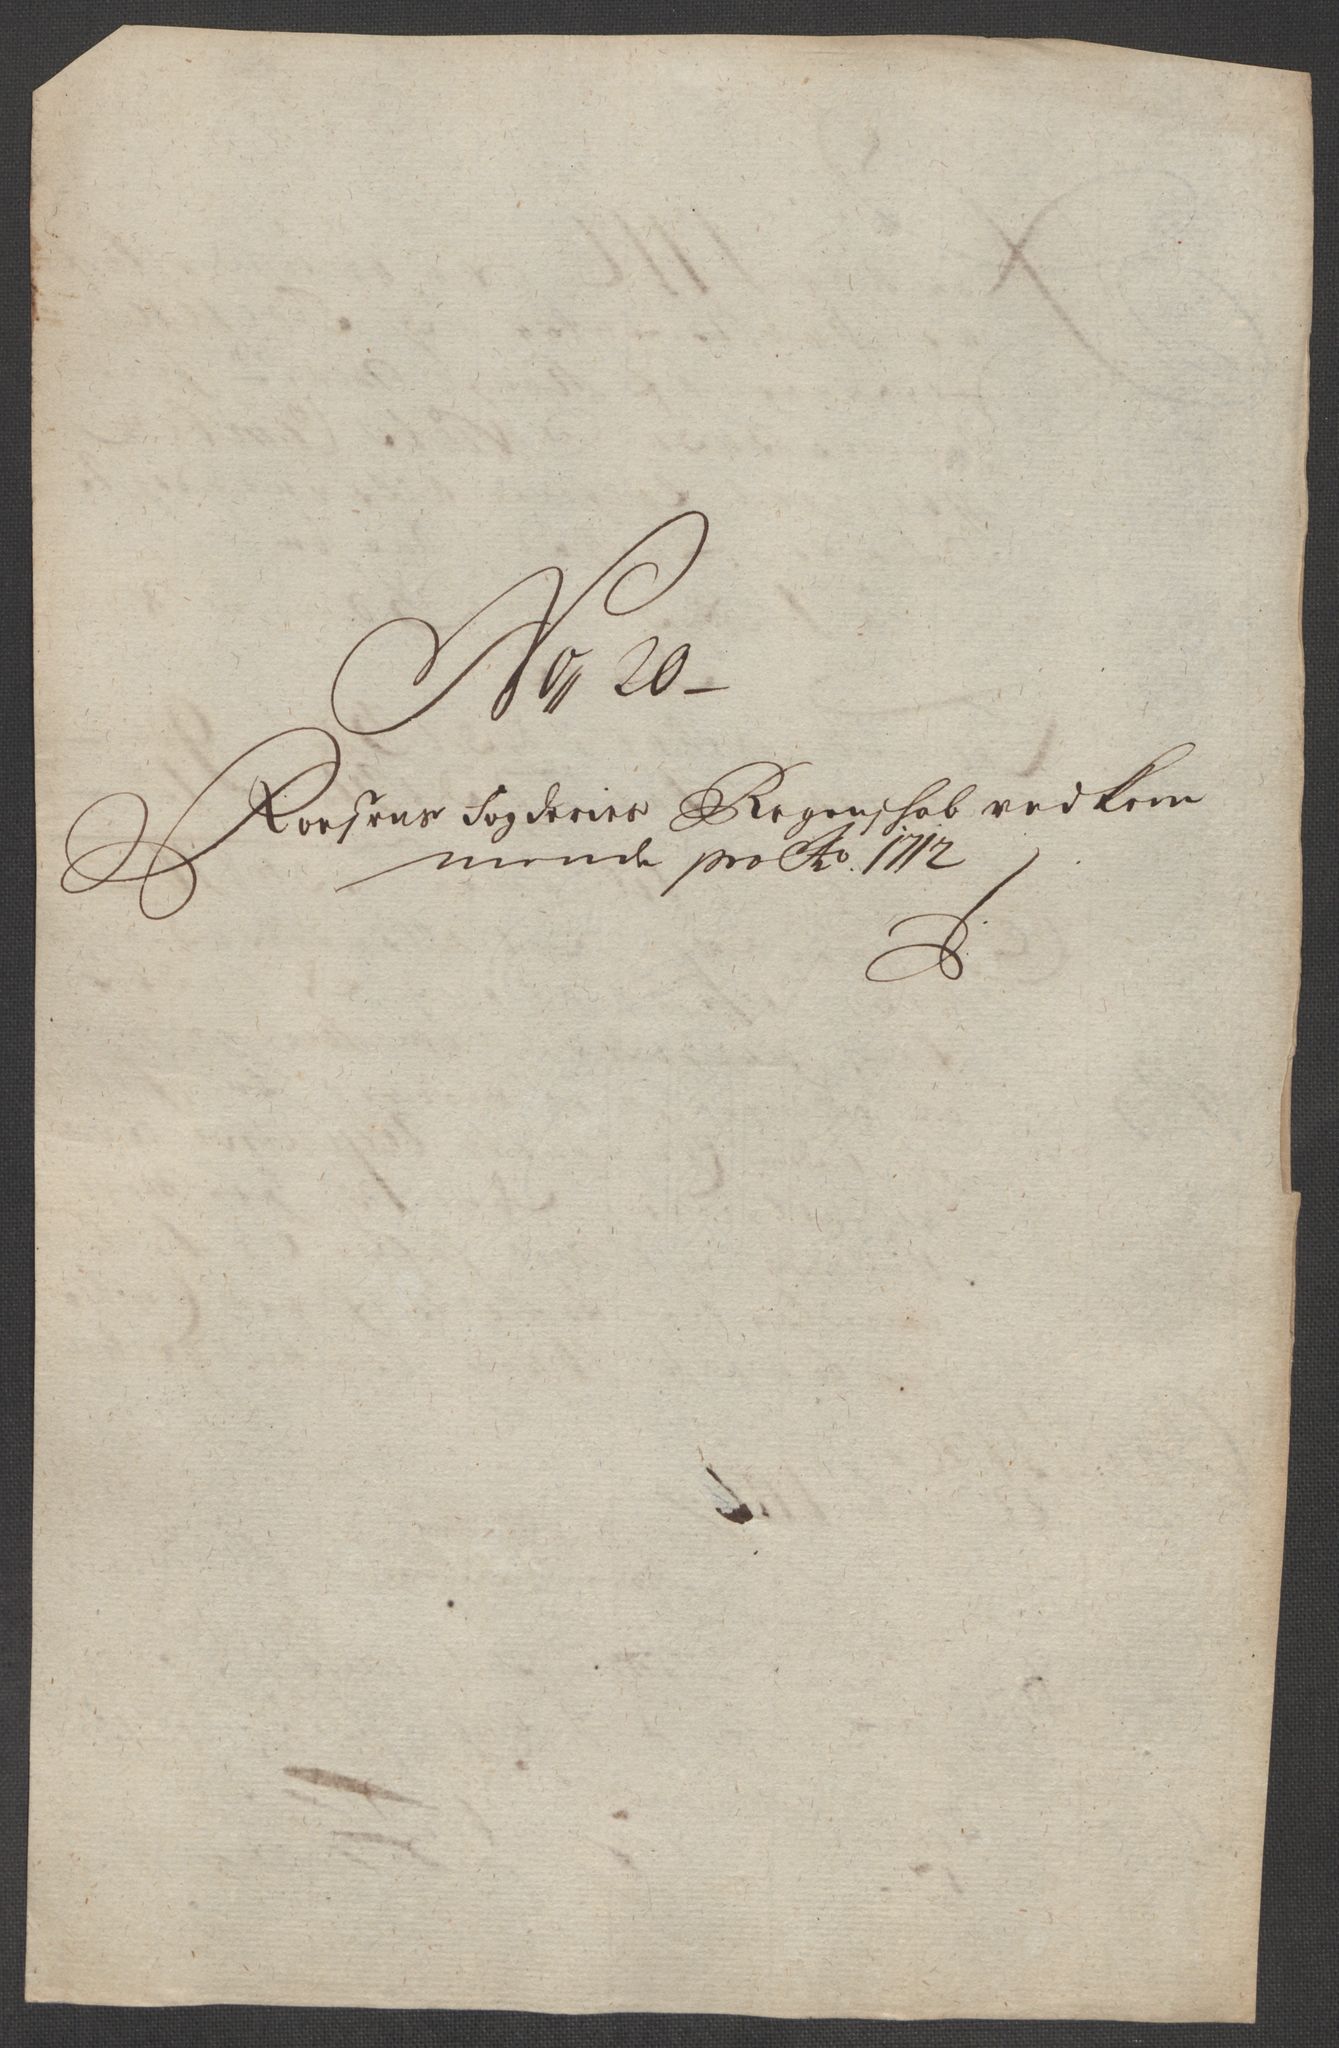 No 20 –
Foesens Fogderies Regenschab vedkom
mende pro Ao. 1712